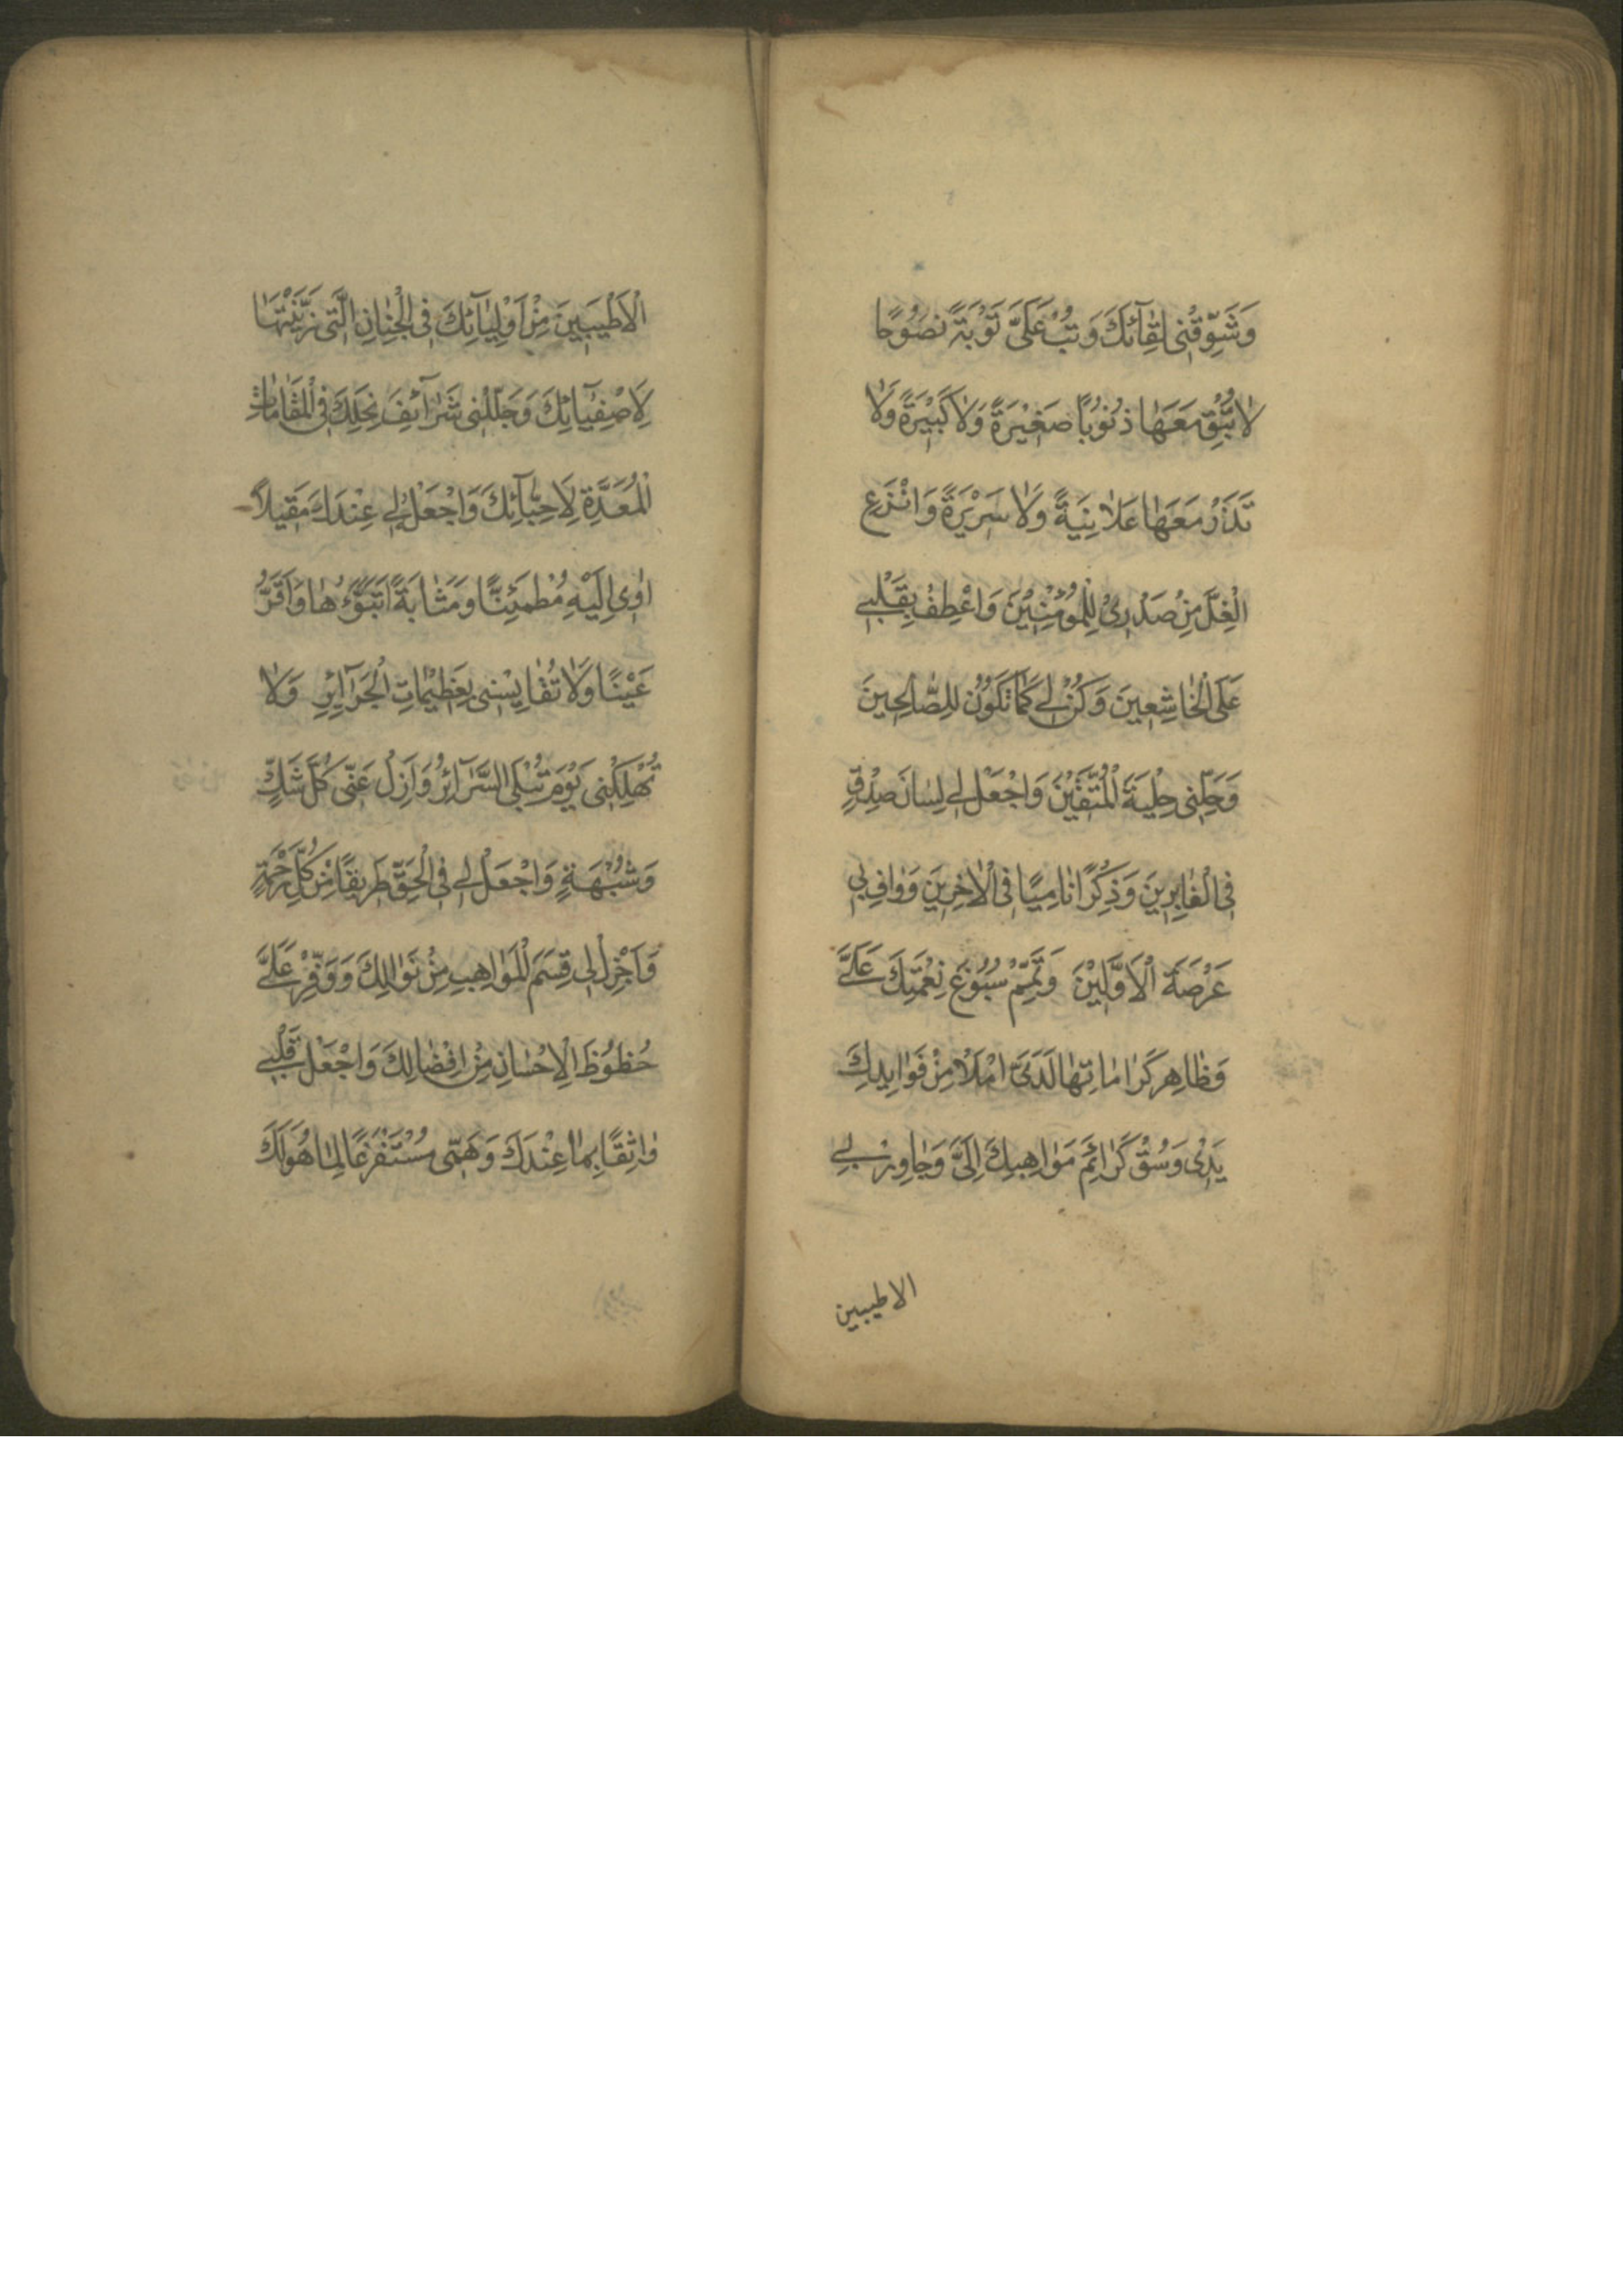 وَشَوِّقْنِي لِقَآئَكَ وَتُبْ عَلَىَّ تَوْبَةً نَصُوحًا
لاٰتُبْقِ مَعَهٰا ذُنُوبًا صَغيْرَةً وَلاٰ كَبيْرَةً وَلاٰ
تَذَرْ مَعَهٰا عَلاٰنِيَةً وَلاٰ سَريْرَةً وَانْزَعِ
الْغِلَّ مِنْ صَدْرِىْ لِلْمُؤْمِنِيْنَ وَاعْطِفْ بِقَلْبِي
عَلَى الْخٰاشِعِينَ وَكُنْ لِي كَمٰا تَكُوْنُ لِلصّٰالِحِينَ
وَحَلِّنِى حِلْيَةَ الْمُتَّقِيْنَ وَاجْعَلْ لِي لِسٰانَ صِدْقٍ
فِى الْغٰابِرِينَ وَذِكْرًا نٰامِيًا فِى الْاٰخِرِينَ وَوٰافِ بِي
عَرْصَةَ الْاَوَّلِيْنَ وَتَمِّمْ سُبُوْغَ نِعْمَتِكَ عَلَىَّ
وَظٰاهِر كَرٰامٰاتِهٰا لَدَىَّ امْلَاْ مِنْ فَوٰايِدِكَ
يَدِىْ وَسُقْ كَرٰائِمَ مَوٰاهِبِكَ اِلَىَّ وَجٰاوِرْ بِي
الاطيبين
الْاَطْيَبِينَ مِنْ اَوْلِيٰآئِكَ فِى الْجِنٰانِ الَّتِى زَيَّنْتَهٰا
لِاَصْفِيٰآئِكَ وَجَلِّلْنِى شَرٰآئِفَ نِحَلِكَ فِى الْمَقٰامٰاتِ
الْمُعَدَّةِ لِاَحِبّٰآئِكَ وَاجْعَلْ لِي عِنْدَكَ مَقيلاً
اٰوِى اِلَيْهِ مُطْمَئِنًّا وَمَثٰابَةً اَتَبَوَّءُهٰا وَاَقَرُّ
عَيْنًا وَلاٰ تُقٰايِسْنِى بِعَظِيْمٰاتِ الْجَرٰآئِرِ وَلاٰ
تُهْلِكْنِى يَوْمَ تُبْلَى السَّرٰآئِرُ وَاَزِلْ عَنِّى كُلَّ شَكٍّ
وَشُبْهَةٍ وَاجْعَلْ لِي فِى الْحَقِّ طَرِيقًا مِنْ كُلِّ رَحْمَةٍ
وَاَجْزِلْ لِى قِسَمَ الْمَوٰاهِبِ مِنْ نَوٰالِكَ وَوَفِّرْ عَلَىَّ
حُظُوْظَ الْاِحْسٰانِ مِنْ اِفْضٰالِكَ وَاجْعَلْ قَلْبِي
وٰاثِقًا بِمٰا عِنْدَكَ وَهَمِّى مُسْتَفْرَغًا لِمٰا هُوَ لَكَ